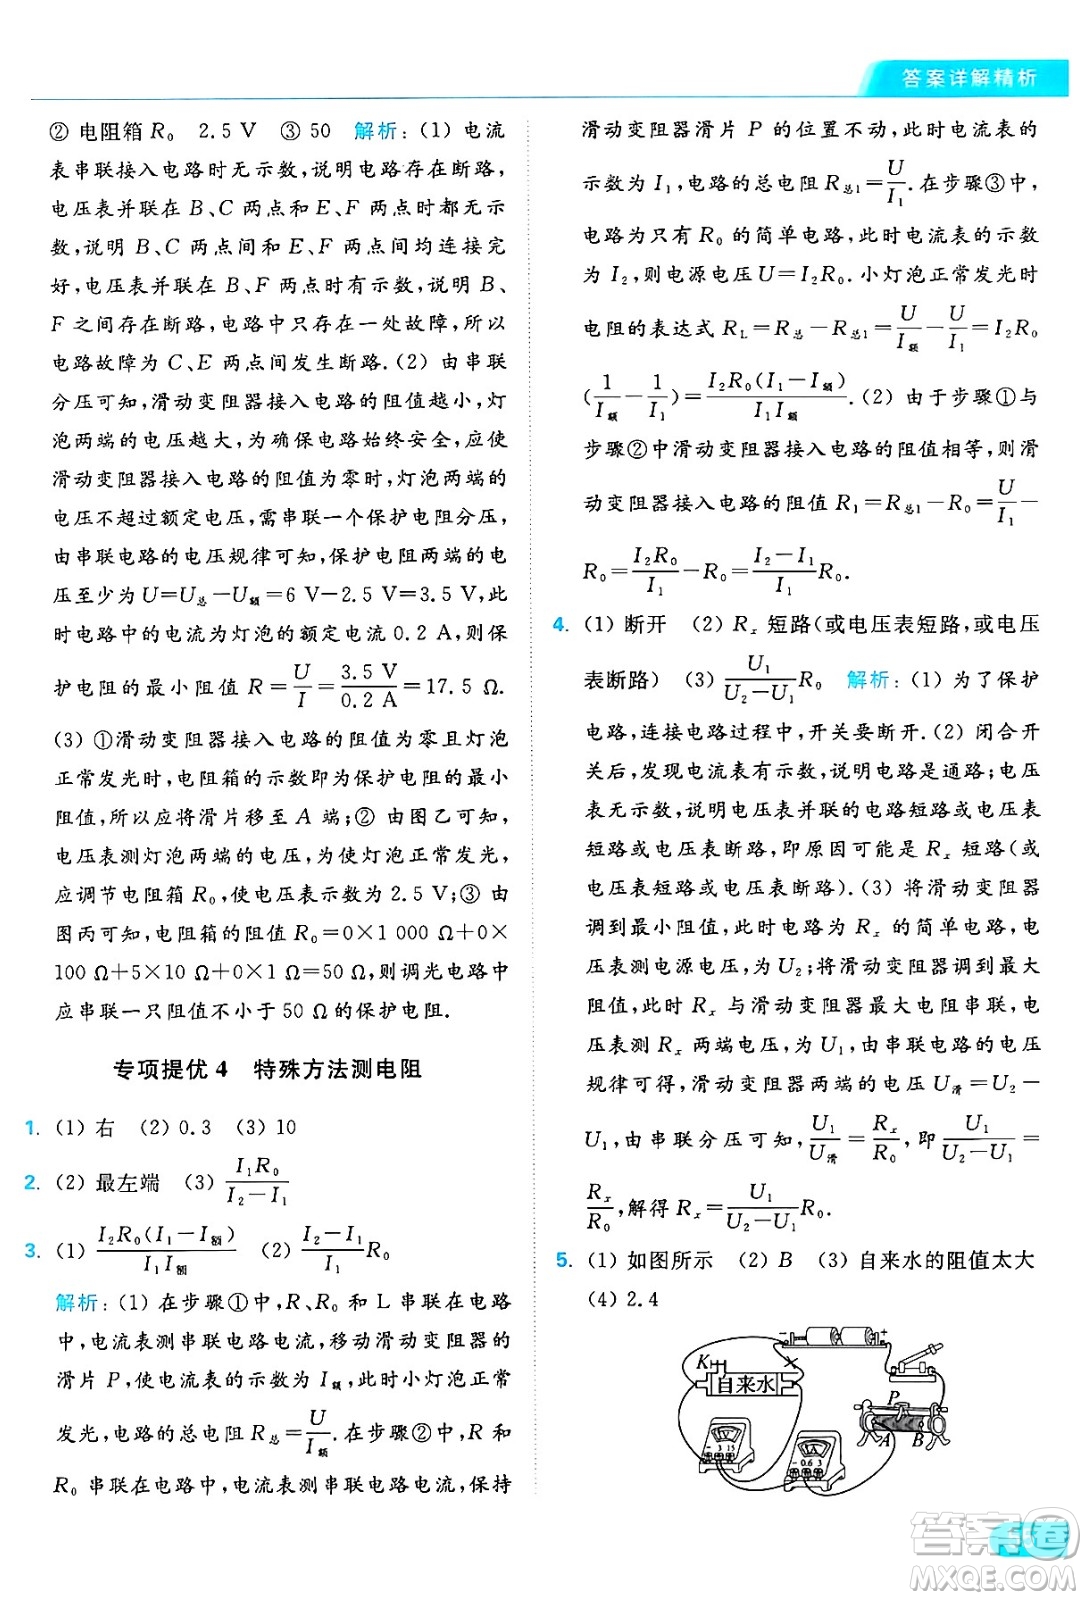 答案详解精析
② 电阻箱 R₀  2.5 V  ③ 50  解析:(1) 电流
表串联接入电路时无示数,说明电路存在断路,
电压表并联在 B、C 两点和 E、F 两点时都无示
数,说明 B、C 两点间和 E、F 两点间均连接完
好,电压表并联在 B、F 两点时有示数,说明 B、
F 之间存在断路,电路中只有一处故障,所以
电路故障为 C、E 两点间发生断路.(2) 由串联
分压可知,滑动变阻器接入电路的阻值越小,灯
泡两端的电压越大,为确保电路始终安全,应使
滑动变阻器接入电路的阻值为零时,灯泡两端的
电压不超过额定电压,需串联一个保护电阻分压,
由串联电路的电压规律可知,保护电阻两端的电
压至少为 U=U总-U额=6 V-2.5 V=3.5 V,此
时电路中的电流为灯泡的额定电流 0.2 A,则保
护电阻的最小阻值 R=U/I=3.5 V/0.2 A=17.5 Ω.
(3) ①滑动变阻器接入电路的阻值为零且灯泡
正常发光时,电阻箱的示数即为保护电阻的最小
阻值,所以应将滑片移至 A 端;② 由图乙可知,
电压表测灯泡两端的电压,为使灯泡正常发光,
应调节电阻箱 R₀,使电压表示数为 2.5 V;③ 由
图丙可知,电阻箱的阻值 R₀=0×1 000 Ω+0×
100 Ω+5×10 Ω+0×1 Ω=50 Ω,则调光电路中
应串联一只阻值不小于 50 Ω 的保护电阻.
专项提优 4  特殊方法测电阻
1. (1) 右  (2) 0.3  (3) 10
2. (2) 最左端  (3) I₁R₀/(I₂-I₁)
3. (1) I₂R₀(I₁-I额)/(I₁I额)  (2) (I₂-I₁)/I₁ R₀
解析:(1) 在步骤①中,R、R₀ 和 L 串联在电路
中,电流表测串联电路电流,移动滑动变阻器的
滑片 P,使电流表的示数为 I额,此时小灯泡正常
发光,电路的总电阻 R总=U/I额.在步骤②中,R 和
R₀ 串联在电路中,电流表测串联电路电流,保持
滑动变阻器滑片 P 的位置不动,此时电流表的
示数为 I₁,电路的总电阻 R总1=U/I₁.在步骤③中,
电路为只有 R₀ 的简单电路,此时电流表的示数
为 I₂,则电源电压 U=I₂R₀.小灯泡正常发光时
电阻的表达式 R_L=R总-R总1=U/I额-U/I₁=I₂R₀
(1/I额-1/I₁)=I₂R₀(I₁-I额)/(I₁I额).(2) 由于步骤①与
步骤②中滑动变阻器接入电路的阻值相等,则滑
动变阻器接入电路的阻值 R₁=R总1-R₀=U/I₁-
R₀=I₂R₀/I₁-R₀=(I₂-I₁)/I₁ R₀.
4. (1) 断开  (2) Rₓ 短路(或电压表短路,或电压
表断路)  (3) U₁/(U₂-U₁) R₀  解析:(1) 为了保护
电路,连接电路过程中,开关要断开.(2) 闭合开
关后,发现电流表有示数,说明电路是通路;电压
表无示数,说明电压表并联的电路短路或电压表
短路或电压表断路,即原因可能是 Rₓ 短路(或
电压表短路或电压表断路).(3) 将滑动变阻器
调到最小阻值,此时电路为 Rₓ 的简单电路,电
压表测电源电压,为 U₂;将滑动变阻器调到最大
阻值,此时 Rₓ 与滑动变阻器最大电阻串联,电
压表测 Rₓ 两端电压,为 U₁,由串联电路的电压
规律可得,滑动变阻器两端的电压 U滑=U₂-
U₁,由串联分压可知,U₁/U滑=Rₓ/R₀,即U₁/(U₂-U₁)=
Rₓ/R₀,解得 Rₓ=U₁/(U₂-U₁) R₀.
5. (1) 如图所示  (2) B  (3) 自来水的阻值太大
(4) 2.4
K
自来水
P
A
B
V
- 3 15
A
- 0.6 3
答案卷
MXQE.COM